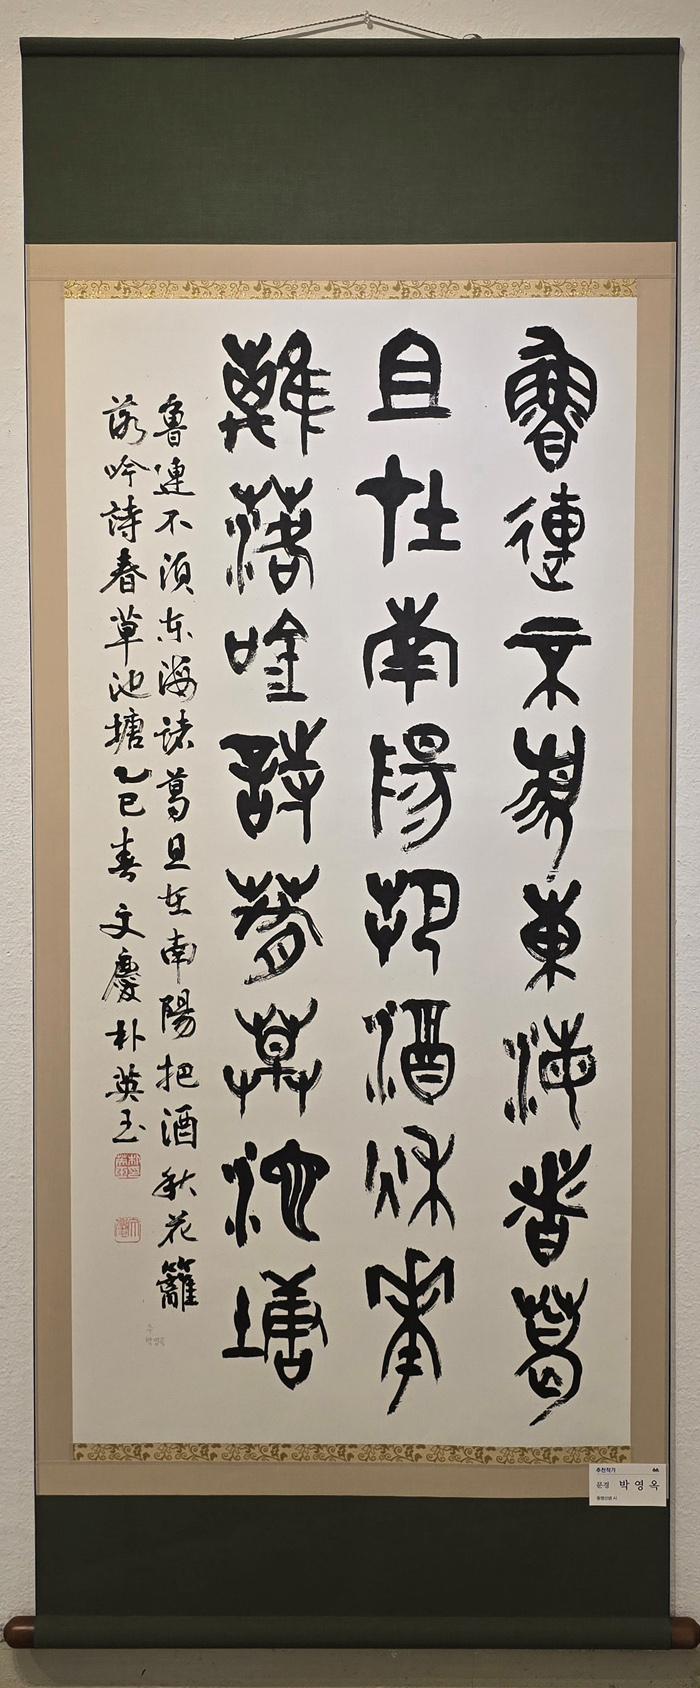 魯連不須東海者葛
且在南陽把酒秋華
離落吟詩春草池塘
魯連不須东海諸葛且在南陽把酒秋花籬
落吟詩春草池塘乙巳春文慶朴英玉
추천작가
문경 박영옥